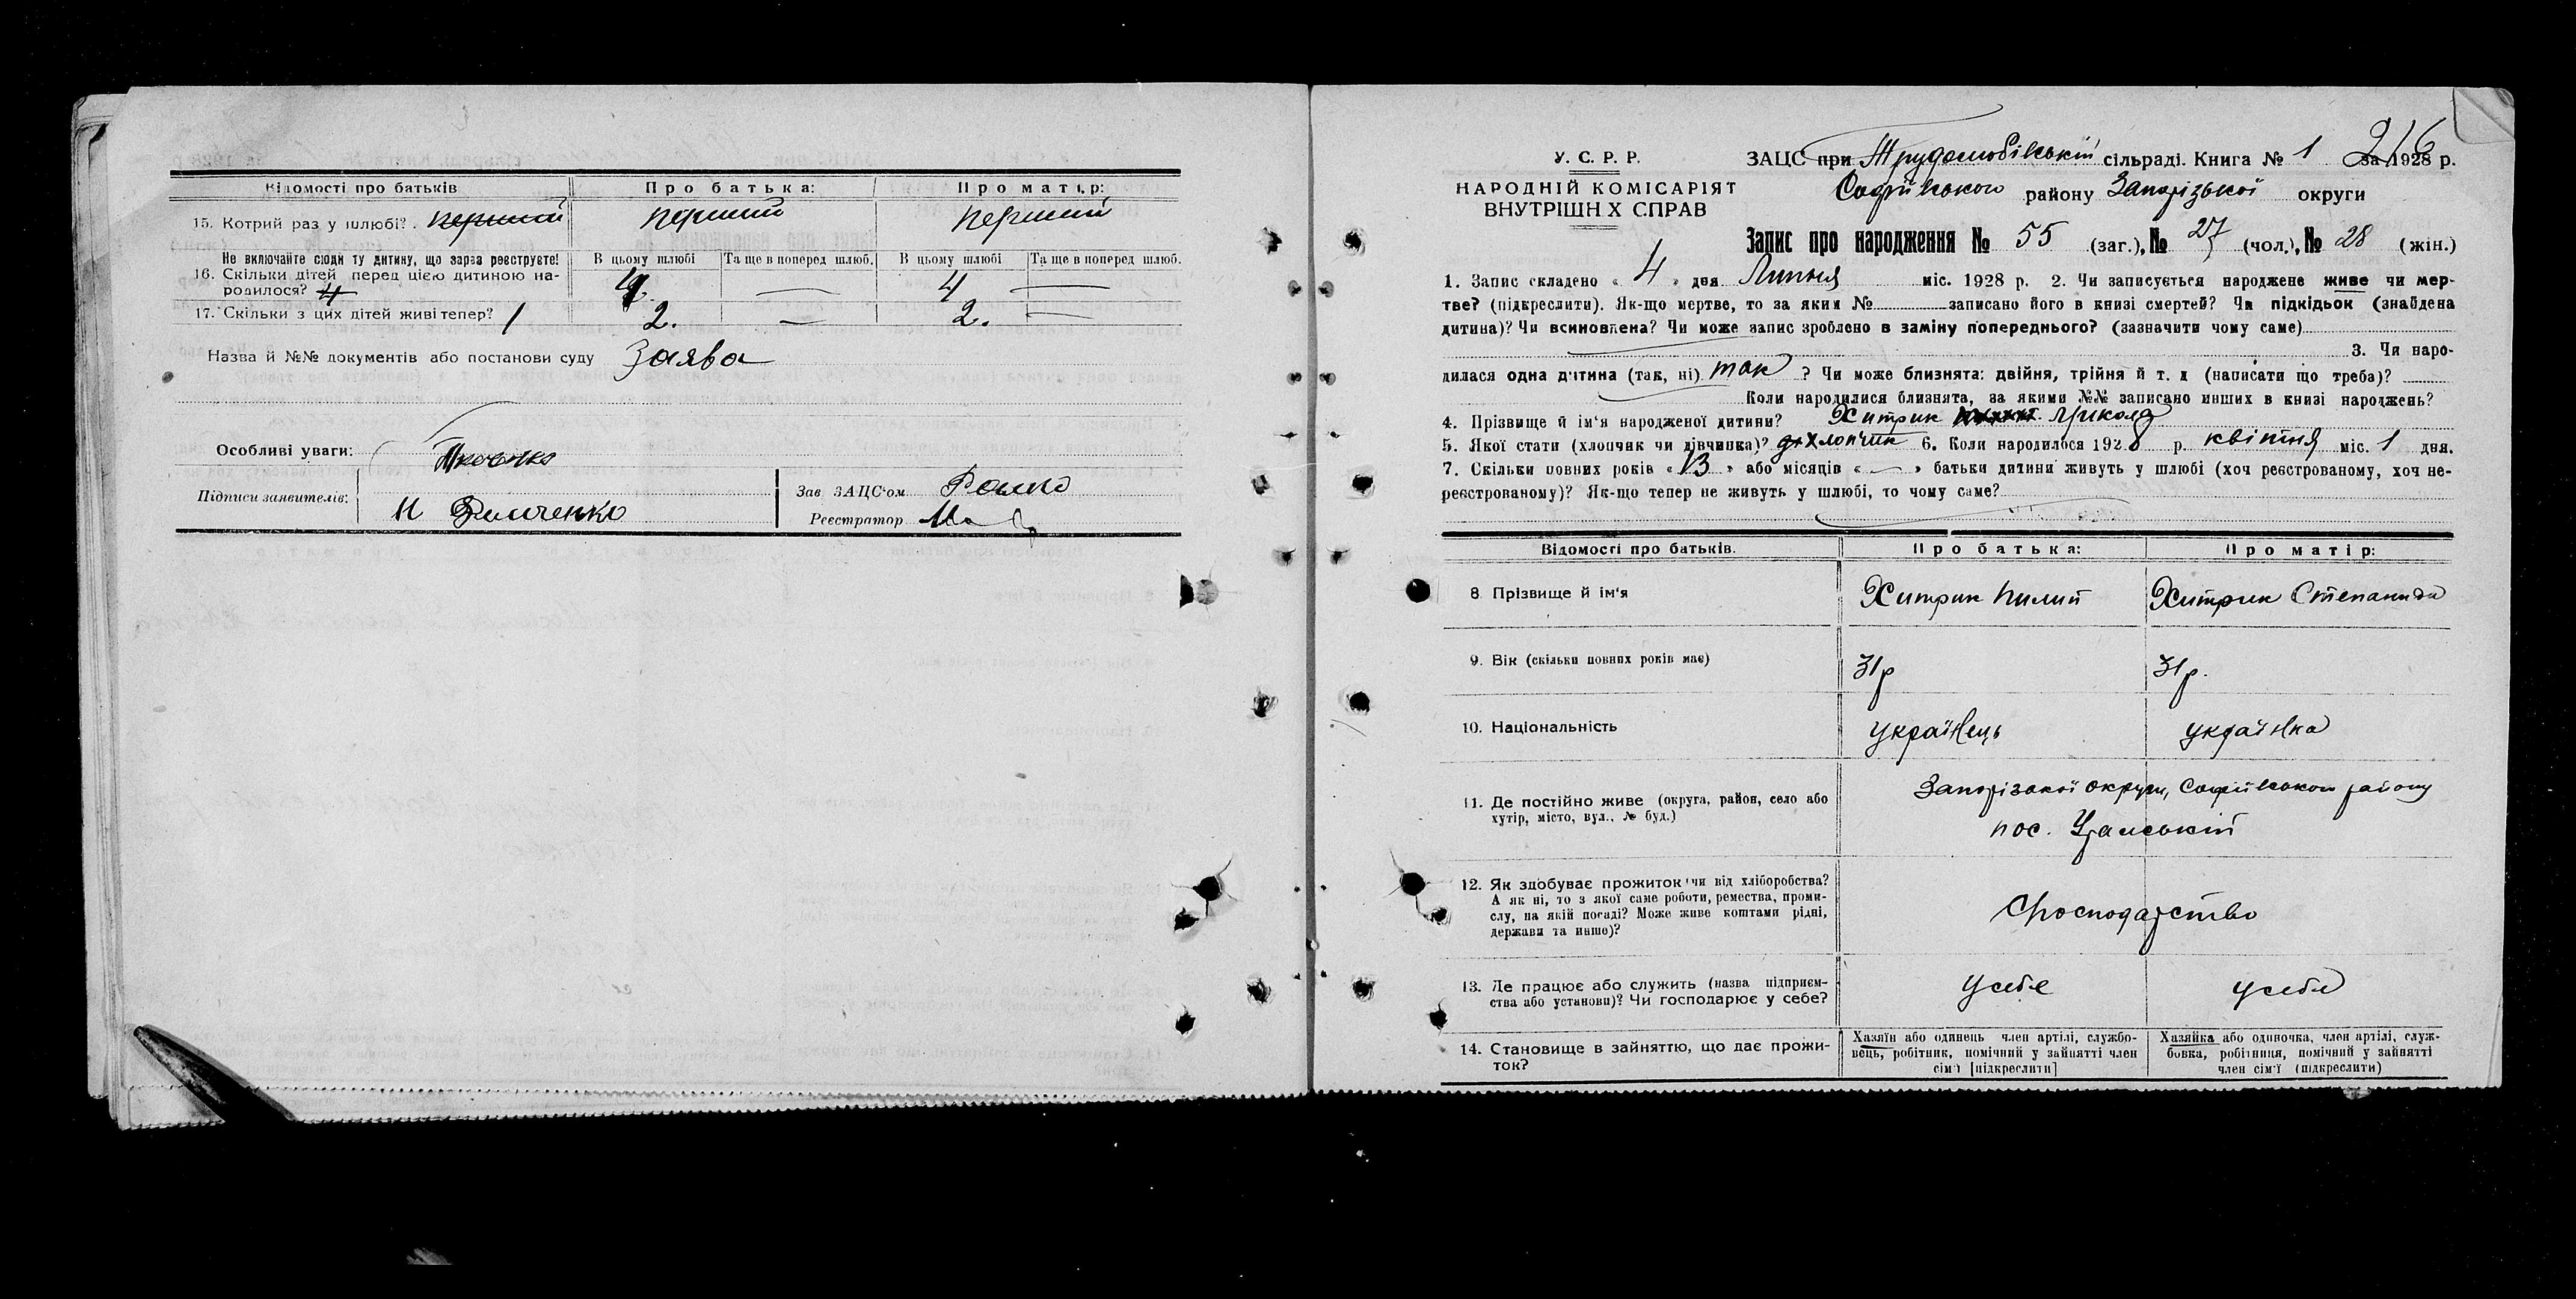 Відомості про батьків
Про батька:
Про матір:
15. Котрий раз у шлюбі? перший
перший
перший
Не включайте сюди ту дитину, що зараз реєструєте!
В цьому шлюбі
Та ще в поперед шлюб.
В цьому шлюбі
Та ще в поперед шлюб.
16. Скільки дітей перед цією дитиною на-
родилося? 4
4
—
4
—
17. Скільки з цих дітей живі тепер? 1
2.
—
2.
—
Назва й №№ документів або постанови суду Заява
Особливі уваги:
Підписи заявителів:
Зав ЗАЦС'ом
Реєстратор
216
У. С. Р. Р.
НАРОДНІЙ КОМІСАРІЯТ
ВНУТРІШН Х СПРАВ
ЗАЦС при Трудолюбівській сільраді. Книга № 1 за 1928 р.
Софіївського району Запорізької округи
Запис про народження № 55 (заг.), № 27 (чол.), № 28 (жін.)
1. Запис складено « 4 » дня Липня міс. 1928 р. 2. Чи записується народжене живе чи мер-
тве? (підкреслити). Як-що мертве, то за яким № записано його в книзі смертей? Чи підкідьок (знайдена
дитина)? Чи всиновлена? Чи може запис зроблено в заміну попереднього? (зазначити чому саме)
3. Чи наро-
дилася одна дитина (так, ні) так ? Чи може близнята: двійня, трійня й т. д (написати що треба)?
Коли народилися близнята, за якими №№ записано инших в книзі народжень?
4. Прізвище й ім'я народженої дитини? Хитрик Микола
5. Якої статі (хлопчик чи дівчинка)? хлопчик 6. Коли народилося 1928 р. квітня міс. 1 дня.
7. Скільки повних років « 13 » або місяців « — » батьки дитини живуть у шлюбі (хоч реєстрованому, хоч не-
реєстрованому)? Як-що тепер не живуть у шлюбі, то чому саме?
Відомості про батьків.
Про батька:
Про матір:
8 Прізвище й ім'я
Хитрик Пилип
Хитрик Степанида
9. Вік (скільки повних років має)
31р
31р.
10. Національність
українець
українка
11. Де постійно живе (округа, район, село або
хутір, місто, вул., № буд.)
Запорізької округи, Софіївського району
пос.
12. Як здобуває прожиток чи від хліборобства?
А як ні, то з якої саме роботи, ремества, проми-
слу, на якій посаді? Може живе коштами рідні,
держави та инше)?
Господарство
13. Де працює або служить (назва підприєм-
ства або установи)? Чи господарює у себе?
у себе
у себе
14. Становище в зайняттю, що дає прожи-
ток?
Хазяїн або одинець член артілі, службо-
вець, робітник, помічний у зайнятті член
сім'ї [підкреслити]
Хазяйка або одиночка, член артілі, служ-
бовка, робітниця, помічний у зайнятті
член сім'ї (підкреслити)